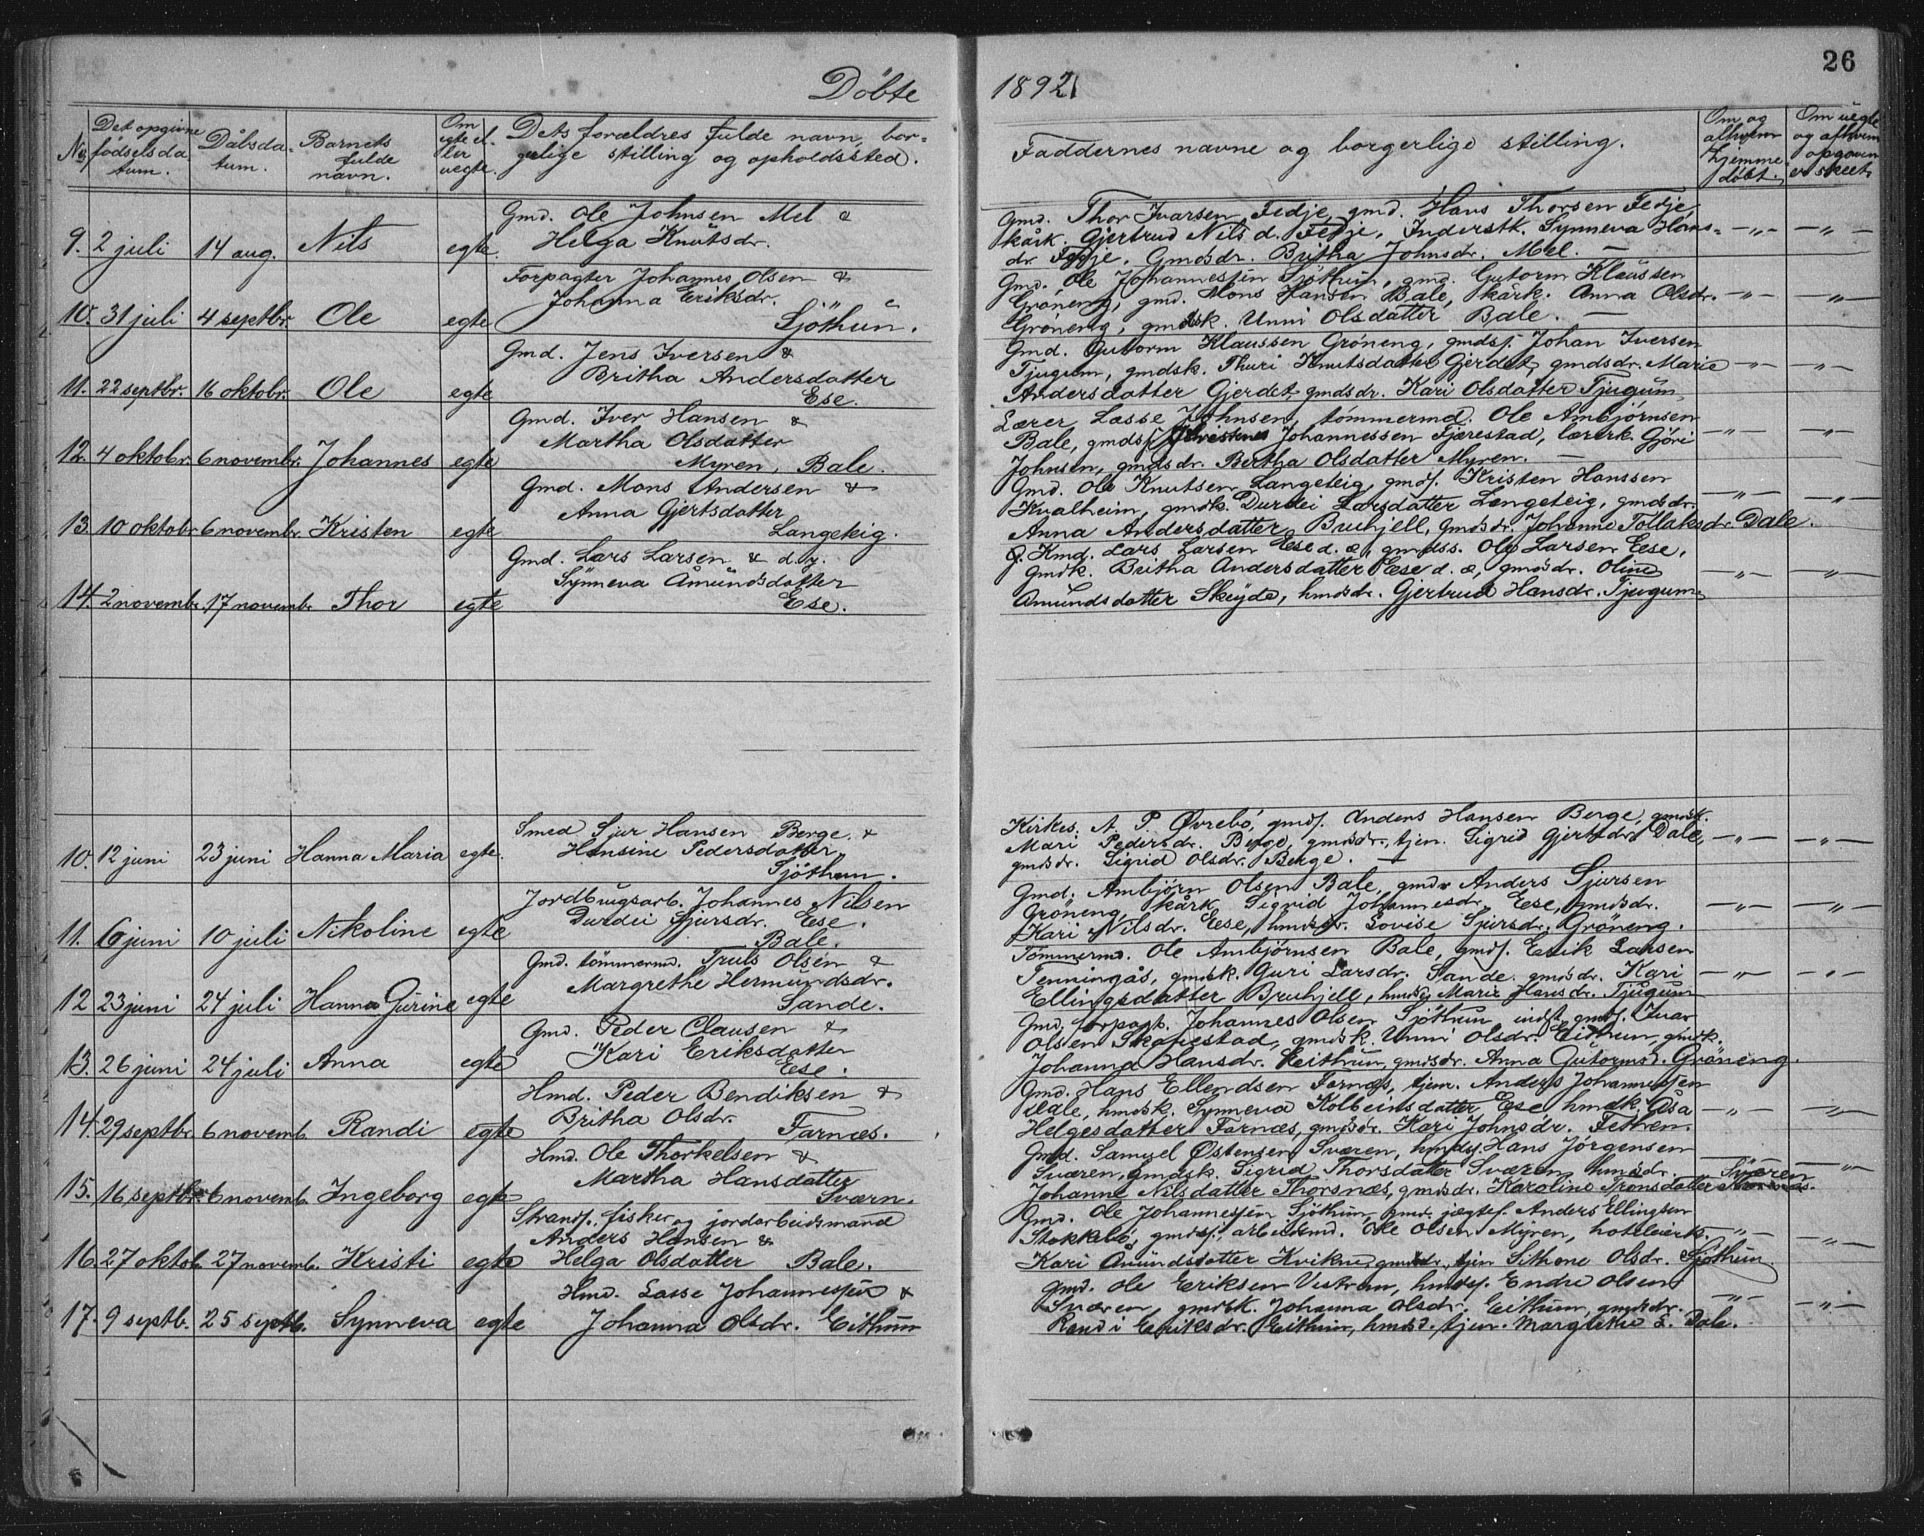 26
Döbte 1892
No
Det opgivne fødselsdatum.
Dåbsdatum.
Barnets fulde navn.
Om egte eller uegte.
Dets forældres fulde navn, borgerlige stilling og opholdssted.
Faddernes navne og borgerlige stilling.
Om og af hvem hjemmedøbt.
Om uegte og af hvem opgaven er skeet.
9. 2 juli 14 aug. Nils egte.
Gmd. Ole Johnsen Mel &
Helga Knutsdr.
Gmd. Thor Ivarsen Fedje, gmd. Hans Thorsen Fedje
kårk. Gjertrud Nils d. Fedje, Inderstk. Synneva Hans-
dr. Fedje, Gmdsdr. Britha Johnsdr. Mel. —
10. 31 juli 4 septbr. Ole egte
Forpagter Johannes Olsen &
Johanna Eriksdr.
Sjöthun.
Gmd. Ole Johannessen Sjöthun, gmd. Gutorm Klaussen
Gröneng, gmd. Mons Hansen Bale, kårk. Anna Olsdr.
Gröneng, gmdsk. Unni Olsdatter Bale. —
11. 22 septbr. 16 oktobr. Ole egte
Gmd. Jens Iversen &
Britha Andersdatter
Ese.
Gmd. Gutorm Klaussen Gröneng, gmds. Johan Iversen
Tjugum, gmdsk. Thuri Knutsdatter Gjerdet, gmdsdr. Marie
Andersdatter Gjerdet, gmdsdr. Kari Olsdatter Tjugum
12. 4 oktobr. 6 novembr. Johannes egte
Gmd. Iver Hansen &
Martha Olsdatter
Myren, Bale.
Lærer Lasse Johnsen, tömmermd. Ole Ambjörnsen
Bale, gmds. Johannessen Fjærestad, lærerk. Gjöri
Johnsen, gmdsdr. Bertha Olsdatter Myren. —
13. 10 oktobr 6 novembr. Kristen egte
Gmd. Mons Andersen &
Anna Gjertsdatter
Langeteig.
Gmd. Ole Knutsen Langeteig, gmds. Kristen Hanssen
Kvalheim, gmdsk. Durdei Larsdatter Langeteig, gmdsdr.
Anna Andersdatter Bruhjell, gmdsdr. Johanne Tollaksdr. Dale.
14. 2 novembr. 17 novembr Thor egte
Gmd. Lars Larsen & d.y.
Synneva Åmundsdatter
Ese.
Gmd. Lars Larsen Ese d. æ, gmdss. Ole Larsen Ese,
gmdk. Britha Andersdatter Ese d. æ, gmdsdr. Oline
Amundsdatter Skeyde, hmdsdr. Gjertrud Hansdr. Tjugum
10. 12 juni 23 juni Hanna Maria egte.
Smed Sjur Hansen Berge &
Hansine Pedersdatter,
Sjöthun.
Kirkes. A. P. Øvrebö, gmds. Anders Hansen Berge, gmdsk.
Mari Pedersdr. Berge, gmdsdr., tjen. Sigrid Gjertsdr. Dale,
gmdsdr. Sigrid Olsdr. Berge. —
11. 6 juni 10 juli Nikoline egte
Jordbrugsarb. Johannes Nilsen
Durdei Sjursdr. Ese.
Bale.
Gmd. Ambjörn Olsen Bale, gmd. Anders Sjursen
Gröneng, kårk. Sigrid Johannesdr. Ese, gmdsdr.
Kari Nilsdr. Ese, hmdsdr. Lovise Sjursdr. Gröneng.
12 23 juni 24 juli Hanna Gurine egte
Gmd. tömmermd. Truls Olsen &
Margrethe Hermundsdr.
Sande.
Tömmermd. Ole Ambjörnsen Bale, gmds. Erik Larsen
Tenningås, gmdsk. Guri Larsdr. Sande. gmdsdr. Kari
Ellingsdatter Bruhjell, hmdsdr. Marie Hansdr. Tjugum
13. 26 juni 24 juli Anna egte
Gmd. Peder Clausen &
Kari Eriksdatter
Ese.
Gmd. forpagt. Johannes Olsen Sjöthun, indst. gmds. Ivar
Olsen Skafrestad, gmdsk. Unni Olsdr. Eithun, gmdk.
Johanna Hansdr. Eithun, gmdsdr. Anna Gutormsd. Gröneng.
14. 29 septbr. 6 novemb. Randi egte
Hmd. Peder Bendiksen &
Britha Olsdr. Farnæs.
Gmd. Hans Ellendsen Farnæs, tjen. Anders Johannessen
Dale, hmdsk. Synneva Kolbeinsdatter Ese, hmdk. Åsa
Helgesdatter Farnæs, gmdsdr. Kari Johnsdr. Fethen.
15. 16 septbr. 6 novemb. Ingeborg egte
Hmd. Ole Thorkelsen &
Martha Hansdatter
Sværn.
Gmd. Samuel Østensen Sværen, hmds. Hans Jörgensen
Sværen, gmdsk. Sigrid Thorsdatter Sværen, hmdsdr.
Johanne Nilsdatter Thorsnæs, gmdsdr. Karoline Tronsdatter Sværen
16. 27 oktob. 27 novemb. Kristi egte
Strands. fisker og jordarbeidsmand
Anders Hansen &
Helga Olsdatter Bale.
Gmd. Ole Johannessen Sjöthun, gmd. jægtes. Anders Ellingsen
Stokkebö, gmds. arbeidsmd. Ole Olsen Myren, hoteleierk.
Kari Amundsdatter Kvikne, gmdsdr. tjen. Sithene Olsdr. Sjöthun
17. 9 septb. 25 septb. Synneva egte
Hmd. Lasse Johannessen &
Johanna Olsdr. Eithun
Gmd. Ole Eriksen Vestrum, hmds. Endre Olsen
Sværen, gmdsk. Johanna Olsdr. Eithun, gmdsdr.
Randi Eriksdr. Eithun, hmdsd. tjen. Margrethe S. Dale.